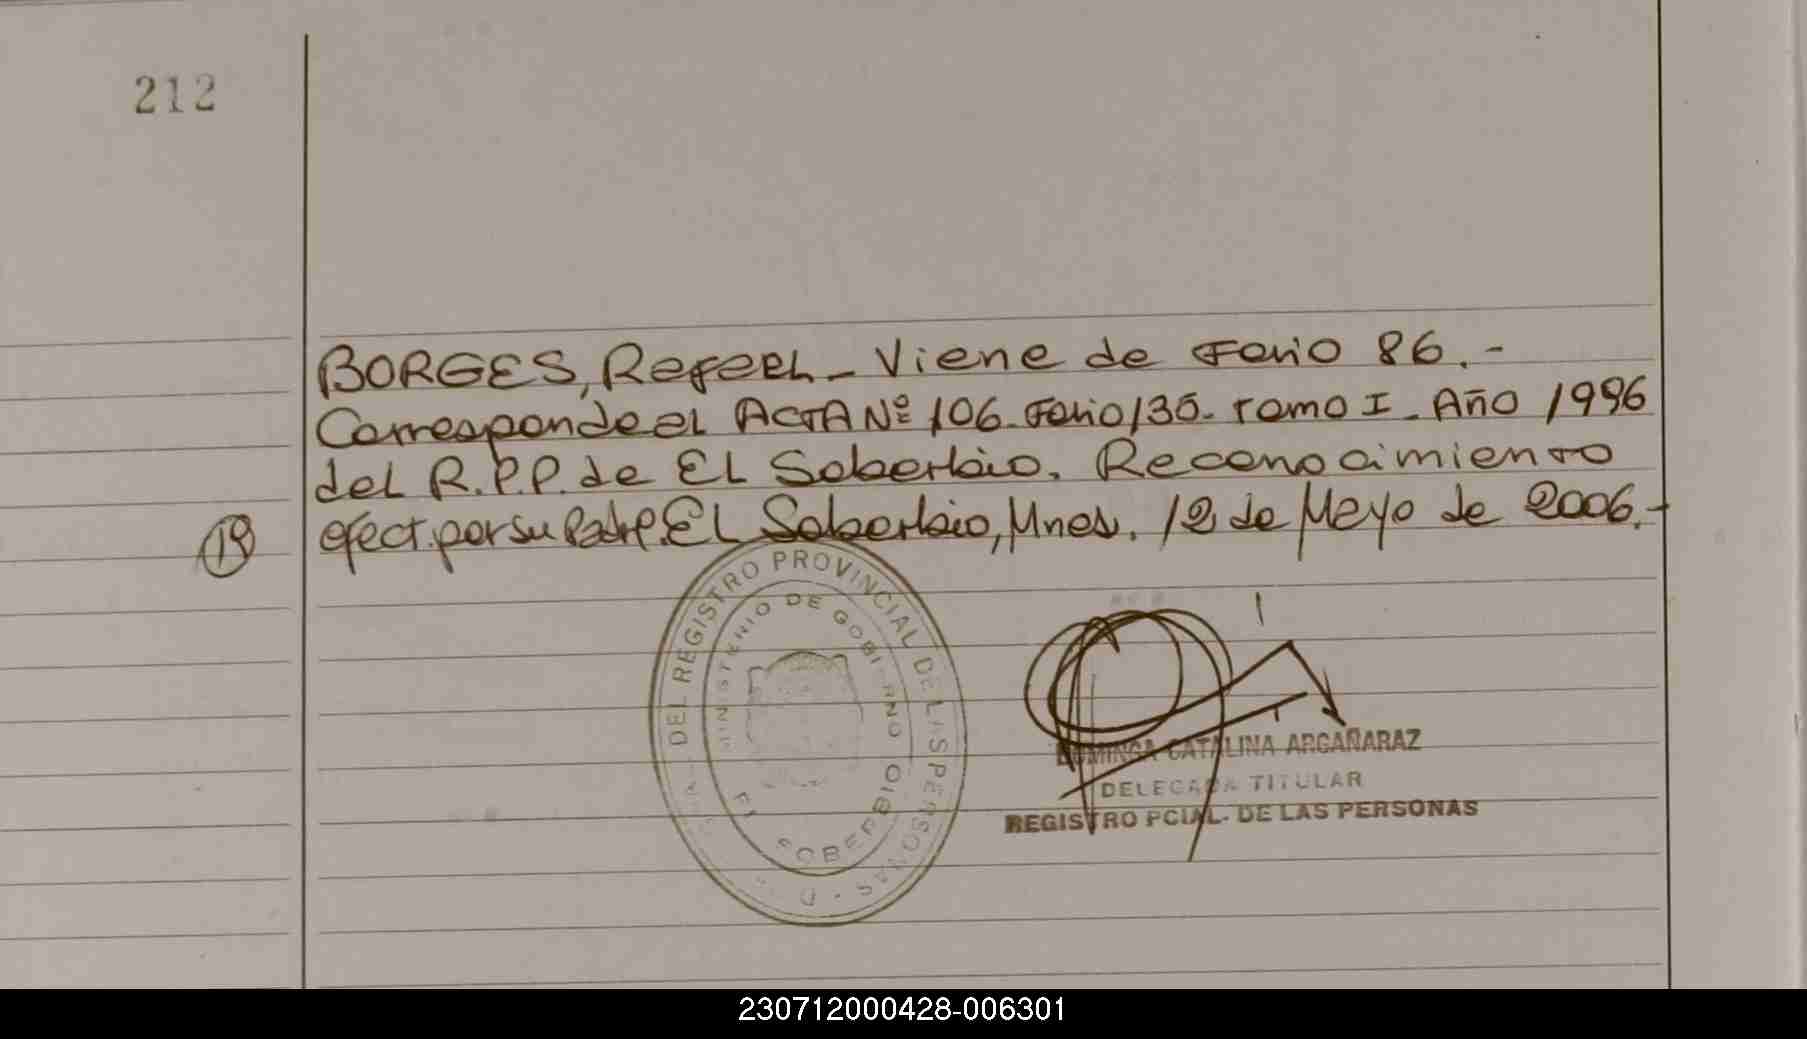 212
BORGES, Rafael - Viene de Folio 86.-
Corresponde al ACTA Nº 106. Folio 135. Tomo I. Año 1996
del R.P.P. de El Soberbio. Reconocimiento
19
efect. por su Padre. El Soberbio, Mnes. 12 de Mayo de 2006.-
DEL REGISTRO PROVINCIAL DE LAS PERSONAS
MINISTERIO DE GOBIERNO
EL SOBERBIO
DOMINGA CATALINA ARGAÑARAZ
DELEGADA TITULAR
REGISTRO PCIAL. DE LAS PERSONAS
230712000428-006301